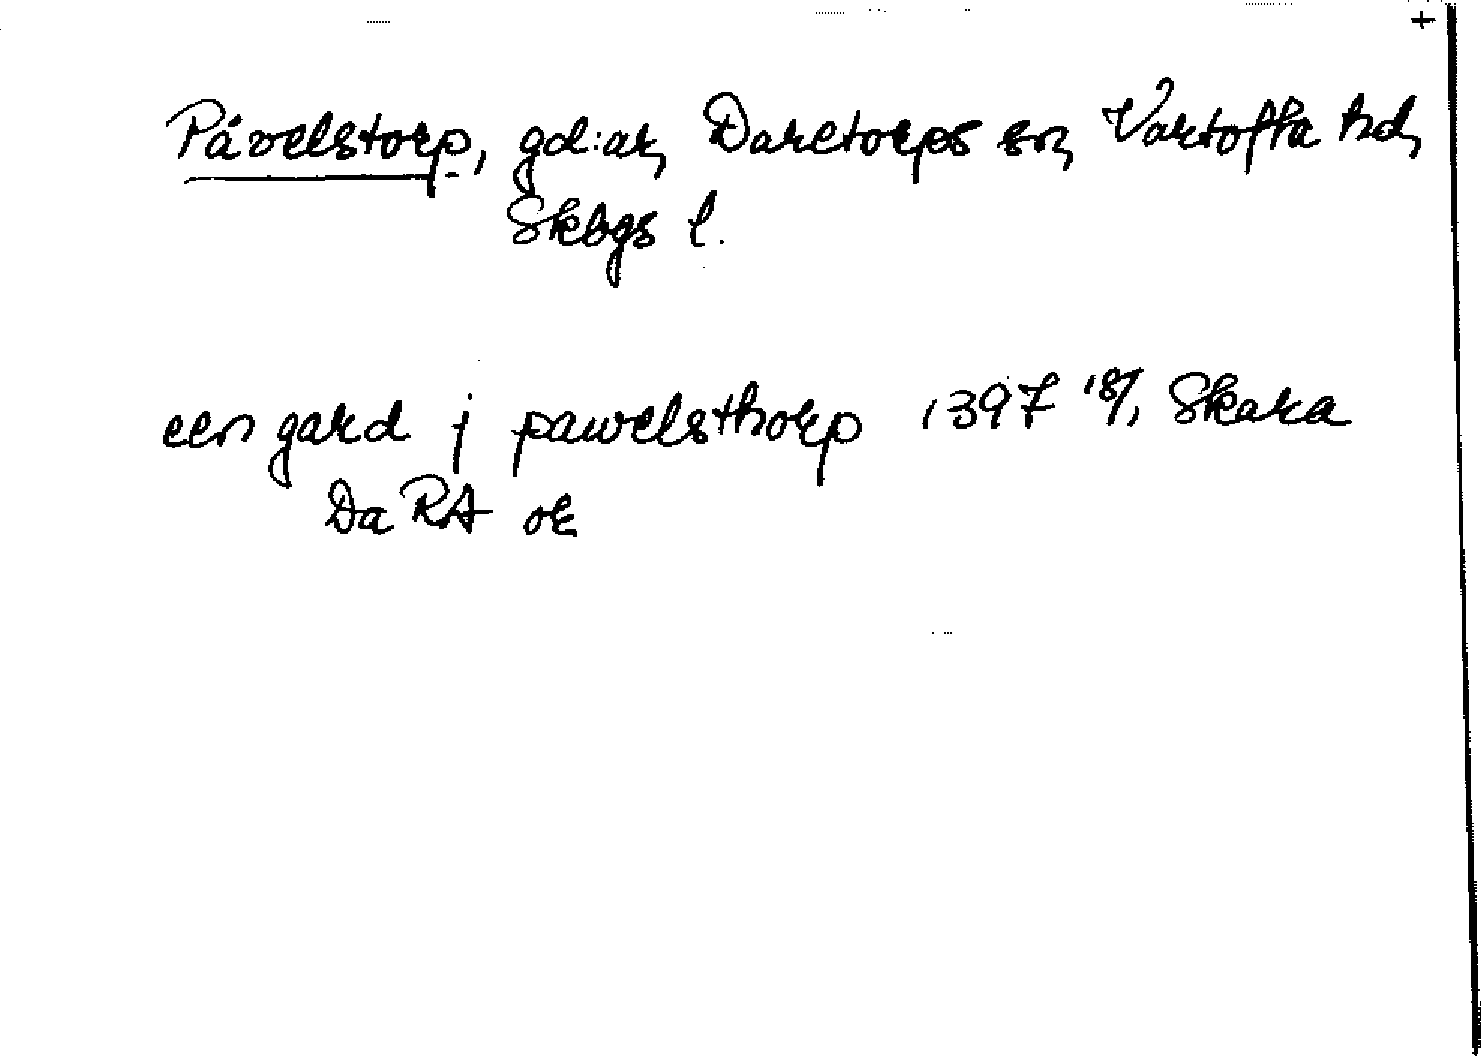 +
Påvelstorp, gd:ar, Daretorps sn, Vartofta hd,
Skbgs l.
een gard j pawelsthorp 1397 18/1 Skara
Da RA or